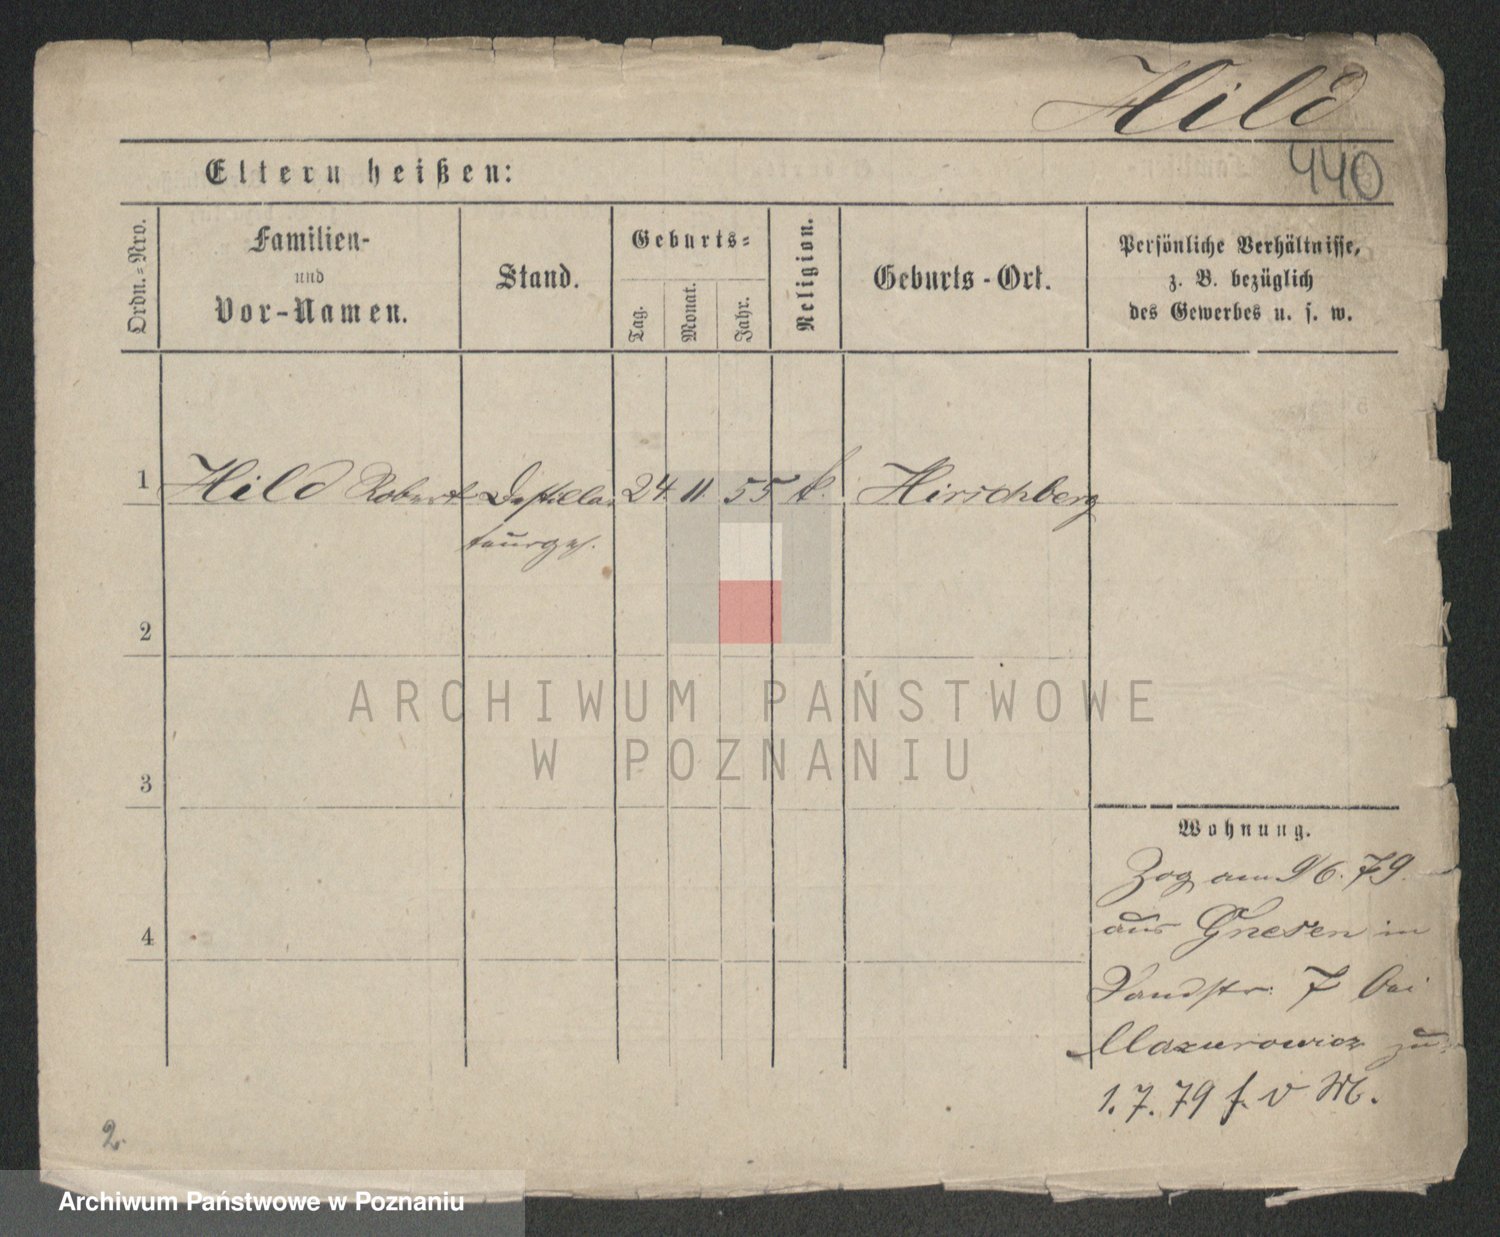 Hild
440
Eltern heißen:
Ordn.=Nro.
Familien-
und
Vor-Namen.
Stand.
Geburts=
Tag.
Monat.
Jahr.
Religion.
Geburts-Ort.
Persönliche Verhältnisse,
z. B. bezüglich
des Gewerbes u. s. w.
1 Hild Robert Destilla- 24. 11. 55 k. Hirschberg
teurgeh.
2
3
4
ARCHIWUM PAŃSTWOWE
W POZNANIU
Wohnung.
Zog am 9/6. 79.
aus Gnesen in
Sandstr. 7 bei
Mazurowicz zu.
1. 7. 79 f. v M.
2.
Archiwum Państwowe w Poznaniu